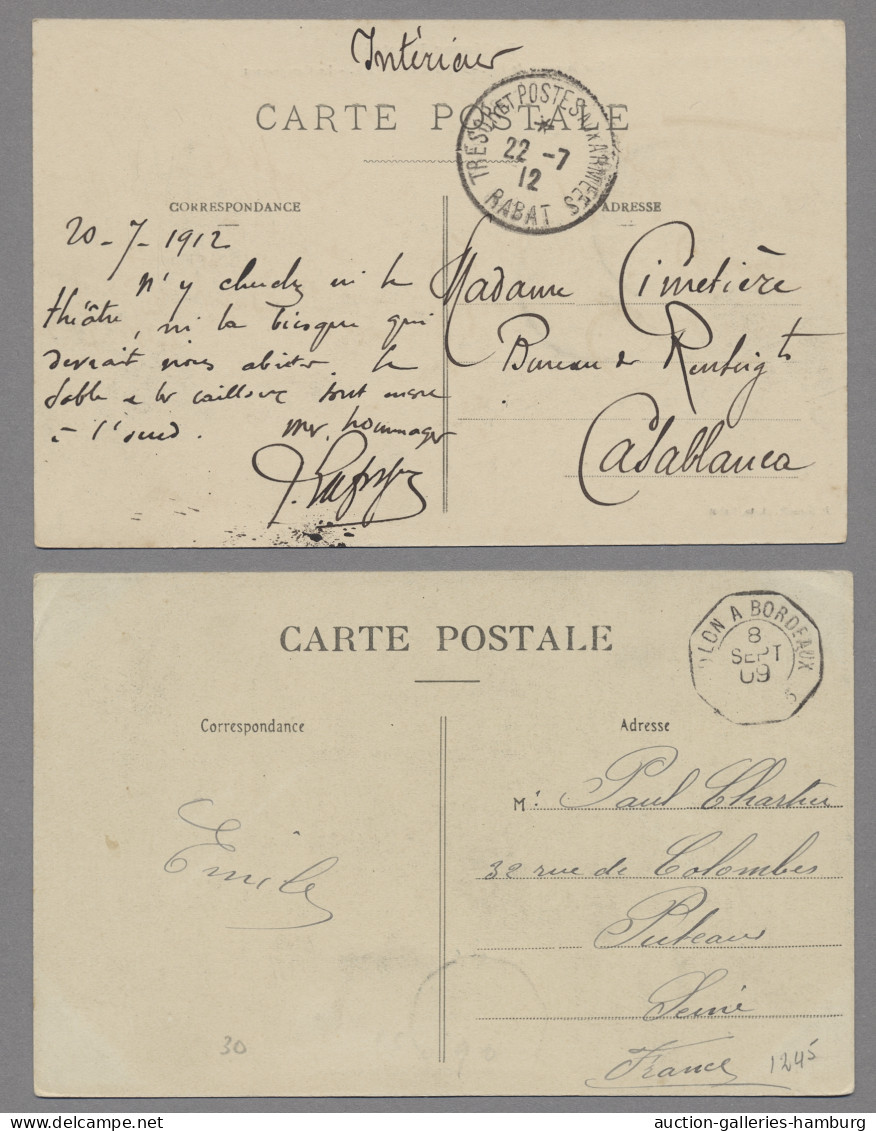 Intérieur
CARTE POSTALE
TRESOR ET POSTES AUX ARMEES
22 -7
12
RABAT
CORRESPONDANCE
ADRESSE
20-7-1912
n'y cherchez ni le
théâtre, ni la
devrait nous abriter. Le
sable et les cailloux sont
à l'oued. Mes hommages
Madame Cimetière
Bureau de Renseigts
Casablanca
CARTE POSTALE
LON A BORDEAUX
8
SEPT
09
Correspondance
Adresse
Emile
Mr. Paul Chartier
32 rue de Colombes
Puteaux
Seine
France
30
1245
auction-galleries-hamburg